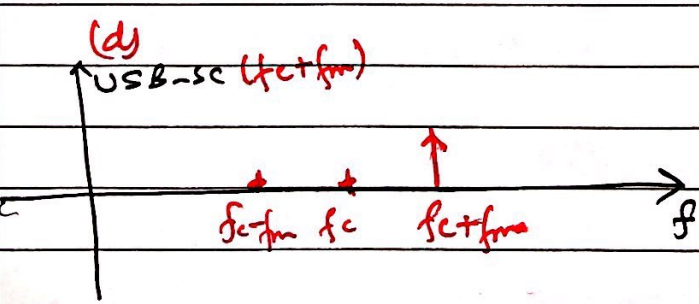 (d)
USB-SC (fc+fm)
fc-fm fc fc+fm f